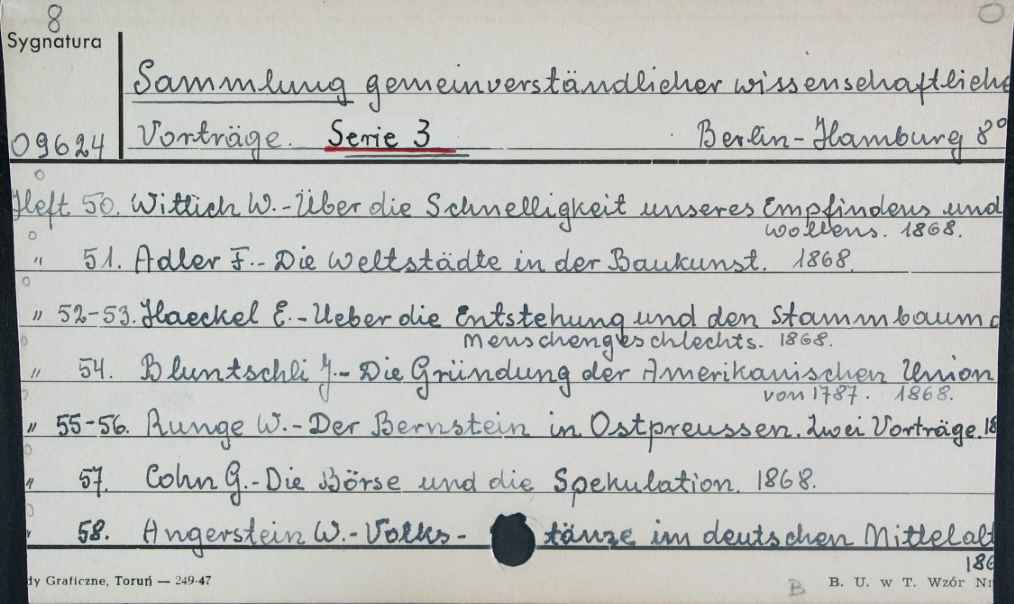 8
Sygnatura
Sammlung gemeinverständlicher wissenschaftliche
09624 Vorträge. Serie 3 Berlin-Hamburg 8°
Heft 50. Wittich W.-Über die Schnelligkeit unseres Empfindens und
Wollens. 1868.
" 51. Adler F.- Die Weltstädte in der Baukunst. 1868.
" 52-53. Haeckel E.-Ueber die Entstehung und den Stammbaum d
Menschengeschlechts. 1868.
" 54. Bluntschli J.- Die Gründung der Amerikanischen Union
von 1787. 1868.
" 55-56. Runge W.-Der Bernstein in Ostpreussen. Zwei Vorträge. 18
" 57. Cohn G.-Die Börse und die Spekulation. 1868.
" 58. Angerstein W.-Volks- tänze im deutschen Mittelalt
186
dy Graficzne, Toruń — 249-47 B B. U. w T. Wzór Nr